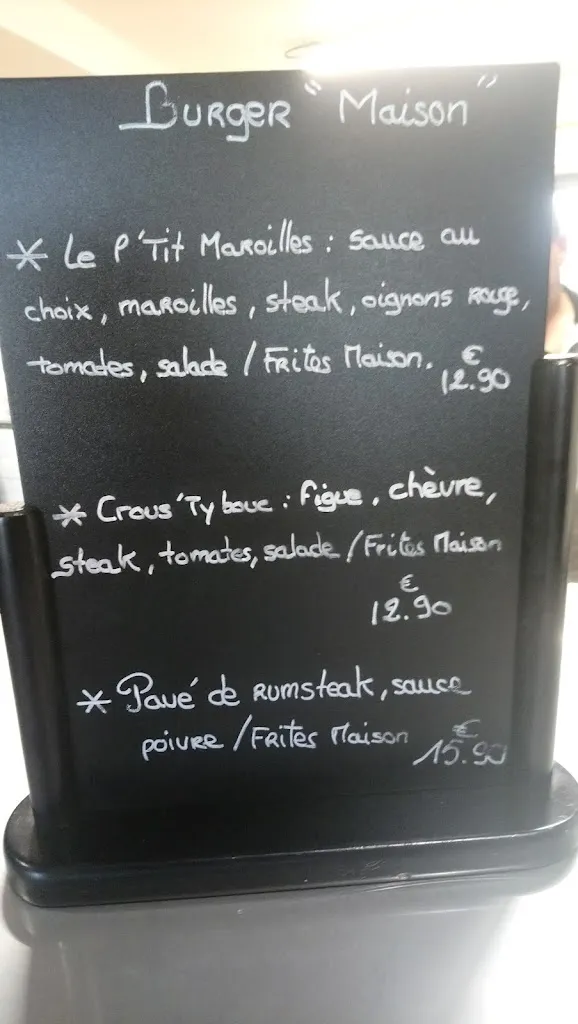 Burger "Maison"
* Le P'Tit Maroilles : sauce au
choix, maroilles, steak, oignons rouge,
tomates, salade / Frites Maison. €
12.90
* Crous'Ty bouc : figue, chèvre,
steak, tomates, salade / Frites Maison
€
12.90
* Pavé de rumsteak, sauce
poivre / Frites Maison €
15.90